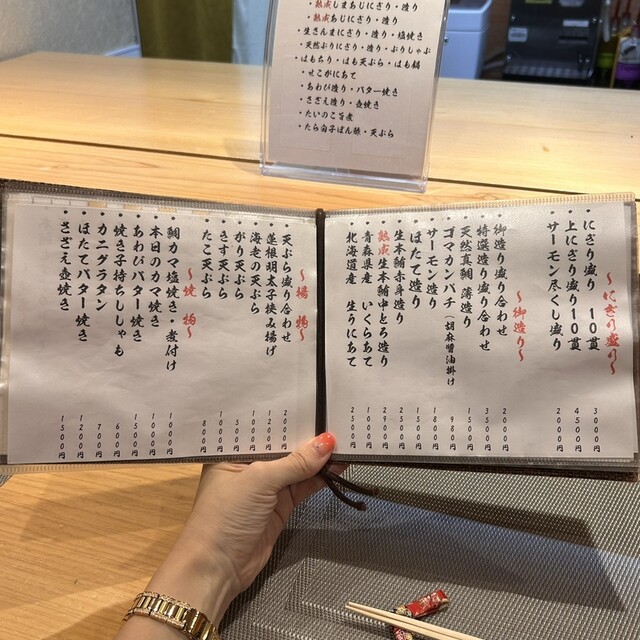 ・熟成しまあじにぎり・造り
・熟成あじにぎり・造り
・生さんまにぎり・造り・塩焼き
・天然ぶりにぎり・造り・ぶりしゃぶ
・はもちり・はも天ぷら・はも鍋
・せこがにあて
・あわび造り・バター焼き
・さざえ造り・壺焼き
・たいのこ旨煮
・たら白子ぽん酢・天ぷら
～にぎり盛り～
・にぎり盛り 10貫 3000円
・上にぎり盛り10貫 4500円
・サーモン尽くし盛り 2000円
～御造り～
・御造り盛り合わせ 2000円
・特選造り盛り合わせ 3500円
・天然真鯛 薄造り 1500円
・ゴマカンパチ(胡麻醤油掛け) 980円
・サーモン造り 1800円
・ほたて造り 1500円
・生本鮪赤身造り 2500円
・熟成生本鮪中とろ造り 2900円
・青森県産 いくらあて 1000円
・北海道産 生うにあて 2500円
～揚 物～
・天ぷら盛り合わせ 2000円
・蓮根明太子挟み揚げ 1200円
・海老の天ぷら 1000円
・がり天ぷら 500円
・きす天ぷら 1000円
・たこ天ぷら 800円
～焼 物～
・鯛カマ塩焼き・煮付け 1000円
・本日のカマ焼き 1000円
・あわびバター焼き 1500円
・焼き子持ちししゃも 600円
・カニグラタン 700円
・ほたてバター焼き 1200円
・さざえ壺焼き 1500円